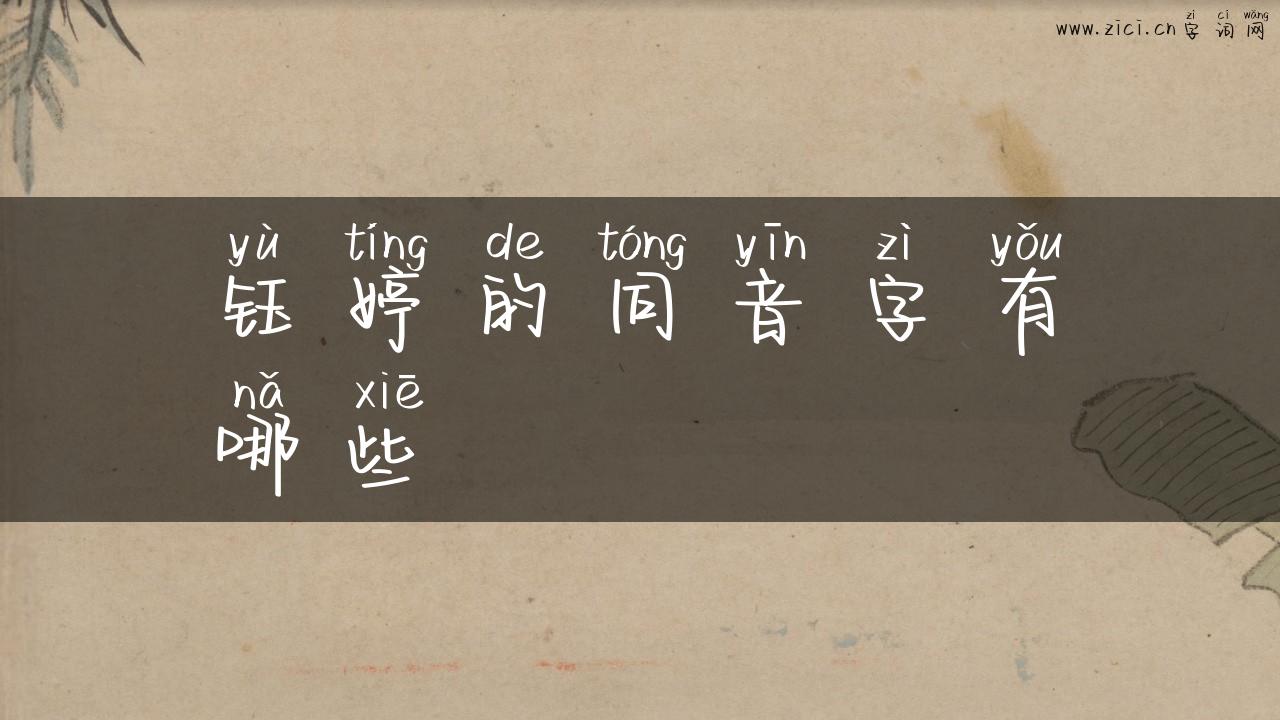 zì cí wǎng
www.zici.cn 字词网
yù tíng de tóng yīn zì yǒu
钰婷的同音字有
nǎ xiē
哪些